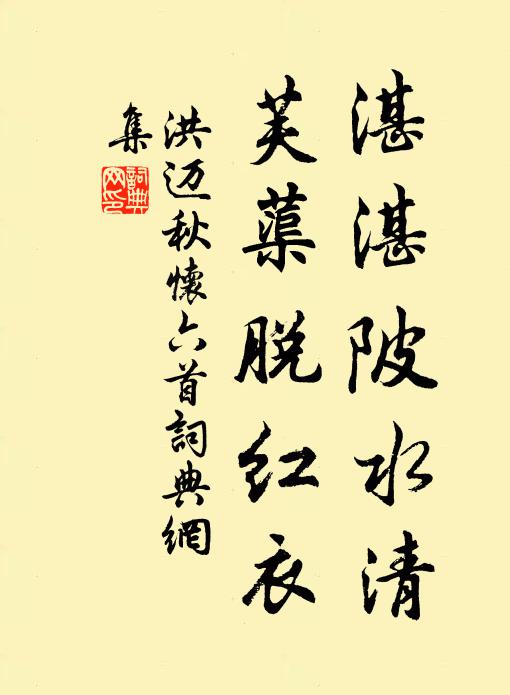 湛湛陂水清
芙蕖脱红衣
洪迈秋懷六首詞典網
集
詞典
网印